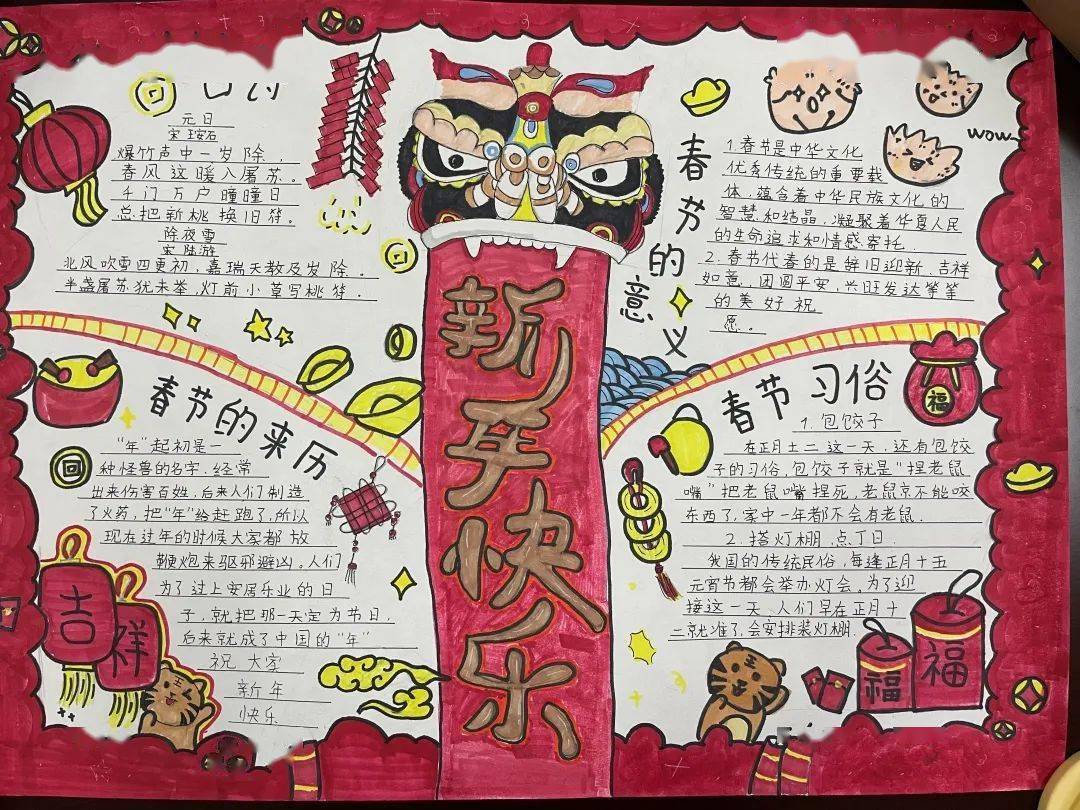 元日
宋 王安石
爆竹声中一岁除,
春风送暖入屠苏.
千门万户曈曈日
总把新桃换旧符。
除夜雪
宋 陆游
北风吹雪四更初,嘉瑞天教及岁除。
半盏屠苏犹未举,灯前小草写桃符。
春节的来历
“年”起初是一
种怪兽的名字.经常
出来伤害百姓,后来人们制造
了火药,把“年”给赶跑了,所以
现在过年的时候大家都放
鞭炮来驱邪避凶。人们
为了过上安居乐业的日
子,就把那一天定为节日,
后来就成了中国的“年”
祝大家
新年
快乐
吉
祥
新年快乐
春节的意义
wow~
1.春节是中华文化
优秀传统的重要载
体,蕴含着中华民族文化的
智慧和结晶,凝聚着华夏人民
的生命追求和情感寄托
2.春节代春的是辞旧迎新.吉祥
如意,团圆平安,兴旺发达等等
的美好祝
愿。
春节习俗
福
1.包饺子
在正月土二这一天,还有包饺
子的习俗,包饺子就是“捏老鼠
嘴”把老鼠嘴捏死,老鼠京不能咬
东西了,家中一年都不会有老鼠.
2.搭灯棚.点丁日.
我国的传统民俗,每逢正月十五
元宵节都会举办灯会。为了迎
接这一天、人们早在正月十
二就准了,会安排装灯棚.
福
福